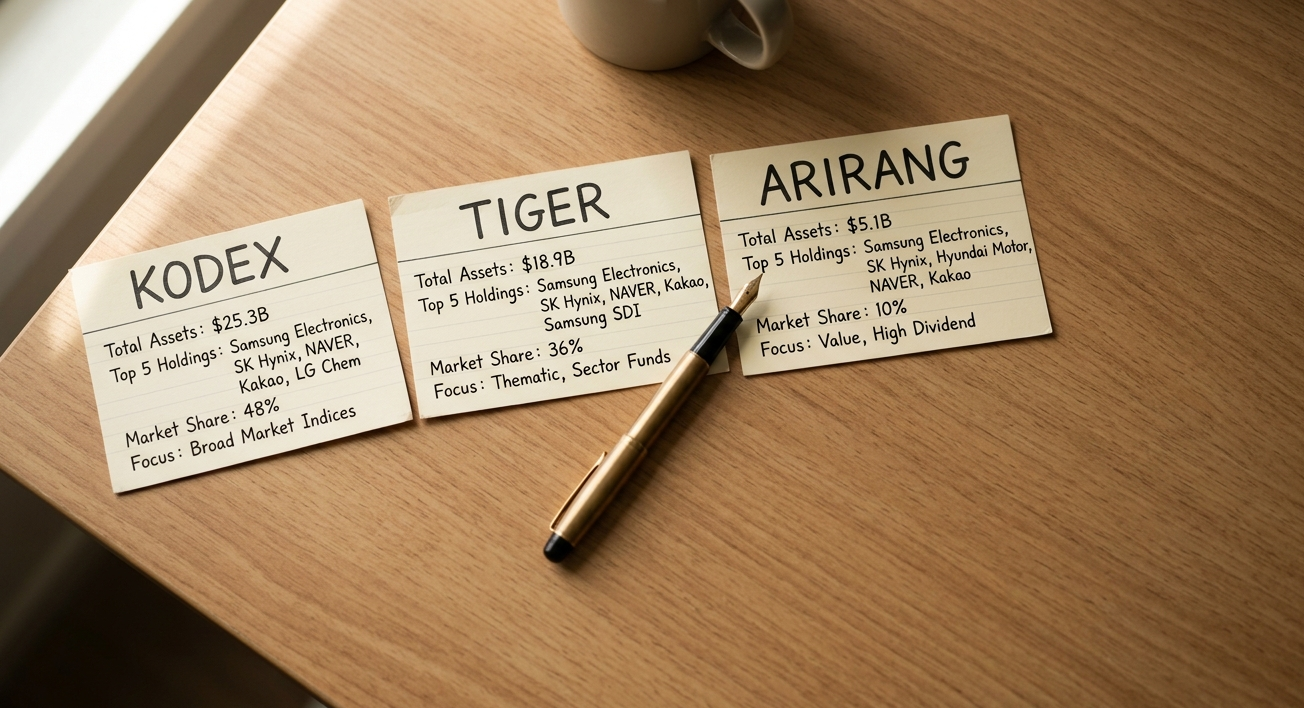 KODEX
Total Assets: $25.3B
Top 5 Holdings: Samsung Electronics,
SK Hynix, NAVER,
Kakao, LG Chem
Market Share: 48%
Focus: Broad Market Indices
TIGER
Total Assets: $18.9B
Top 5 Holdings: Samsung Electronics,
SK Hynix, NAVER, Kakao,
Samsung SDI
Market Share: 36%
Focus: Thematic, Sector Funds
ARIRANG
Total Assets: $5.1B
Top 5 Holdings: Samsung Electronics,
SK Hynix, Hyundai Motor,
NAVER, Kakao
Market Share: 10%
Focus: Value, High Dividend